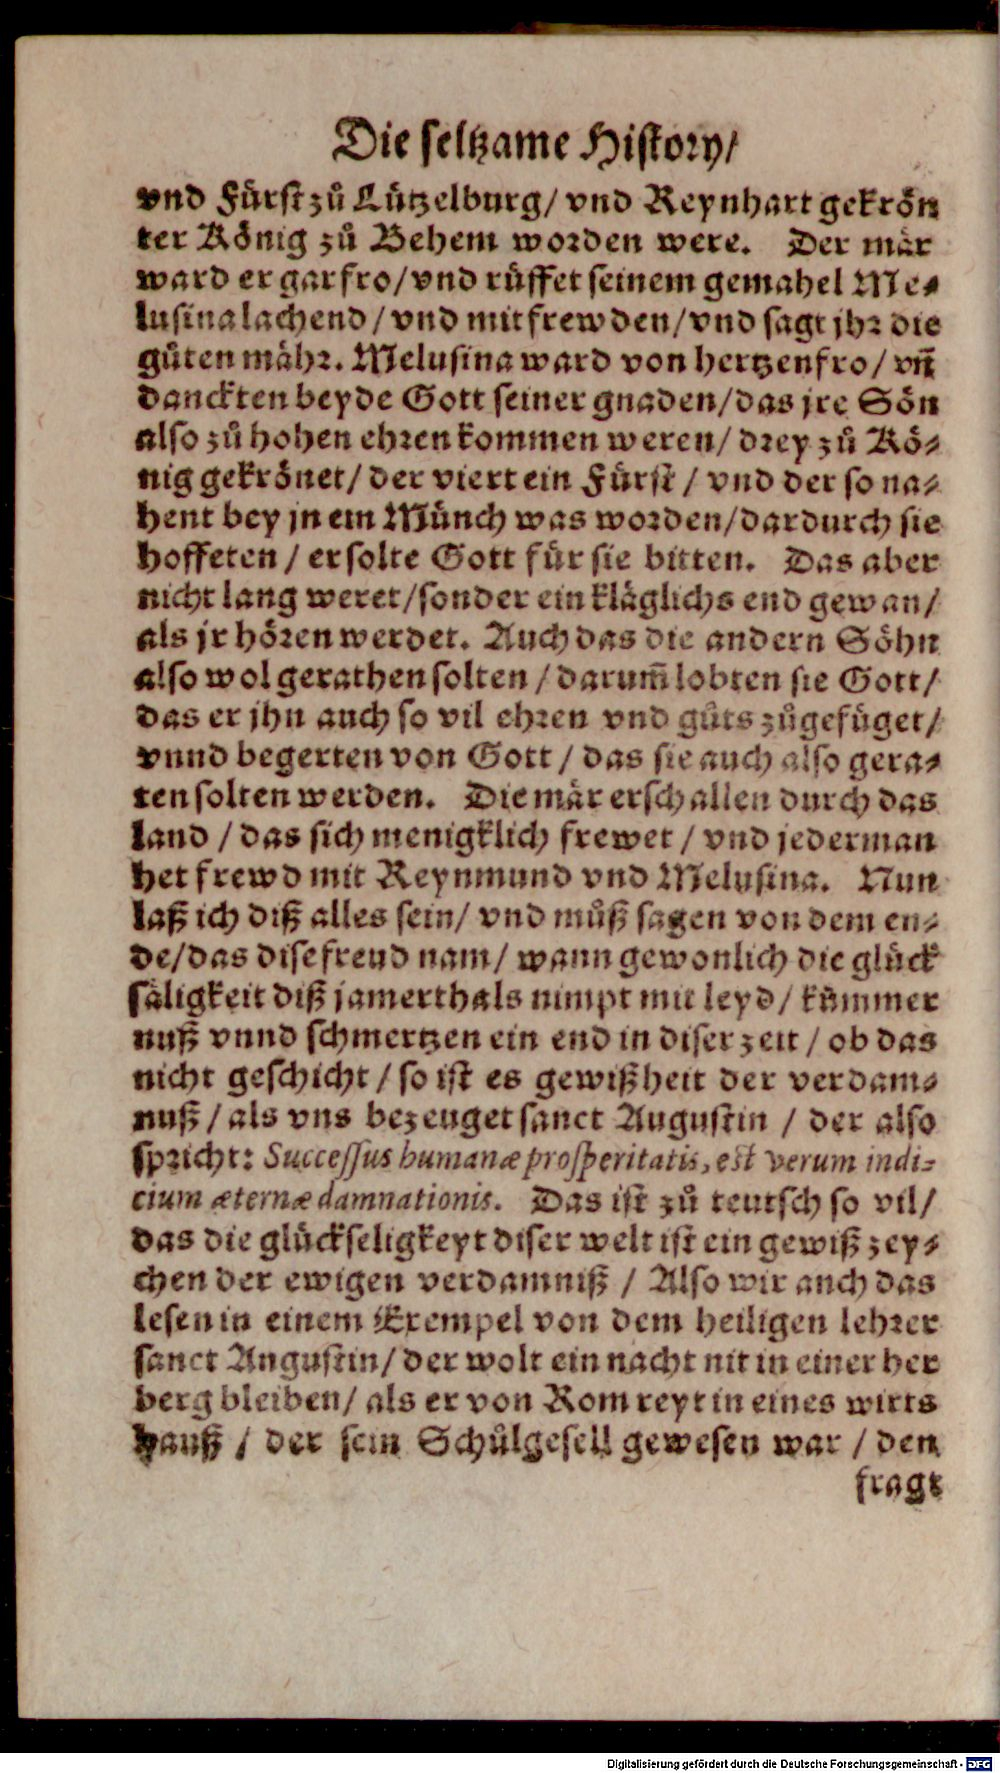 Die seltzame History/
vnd Fürst zů Lützelburg/ vnd Reynhart gekrön
ter König zů Behem worden were. Der mär
ward er gar fro/ vnd růffet seinem gemahel Me-
lusina lachend/ vnd mit frewden/ vnd sagt jhr die
gůten mähr. Melusina ward von hertzen fro/ vñ
danckten beyde Gott seiner gnaden/ das jre Sön
also zů hohen ehren kommen weren/ drey zů Kö-
nig gekrönet/ der viert ein Fürst/ vnd der so na-
hent bey jn ein Münch was worden/ dardurch sie
hoffeten/ er solte Gott für sie bitten. Das aber
nicht lang weret/ sonder ein kläglichs end gewan/
als jr hören werdet. Auch das die andern Söhn
also wol gerathen solten/ darum̃ lobten sie Gott/
das er jhn auch so vil ehren vnd gůts zůgefüget/
vnnd begerten von Gott/ das sie auch also gera-
ten solten werden. Die mär erschallen durch das
land/ das sich menigklich frewet/ vnd jederman
het frewd mit Reynmund vnd Melusina. Nun
laß ich diß alles sein/ vnd můß sagen von dem en-
de/ das dise freud nam/ wann gewonlich die glück
säligkeit diß jamerthals nimpt mit leyd/ kümmer
nuß vnnd schmertzen ein end in diser zeit/ ob das
nicht geschicht/ so ist es gewißheit der verdam-
nuß/ als vns bezeuget sanct Augustin/ der also
spricht: Successus humanæ prosperitatis, est verum indi-
cium æternæ damnationis. Das ist zů teutsch so vil/
das die glückseligkeyt diser welt ist ein gewiß zey-
chen der ewigen verdamniß/ Also wir auch das
lesen in einem Exempel von dem heiligen lehrer
sanct Augustin/ der wolt ein nacht nit in einer her
berg bleiben/ als er von Rom reyt in eines wirts
hauß/ der sein Schůlgesell gewesen war/ den
fragt
Digitalisierung gefördert durch die Deutsche Forschungsgemeinschaft - DFG